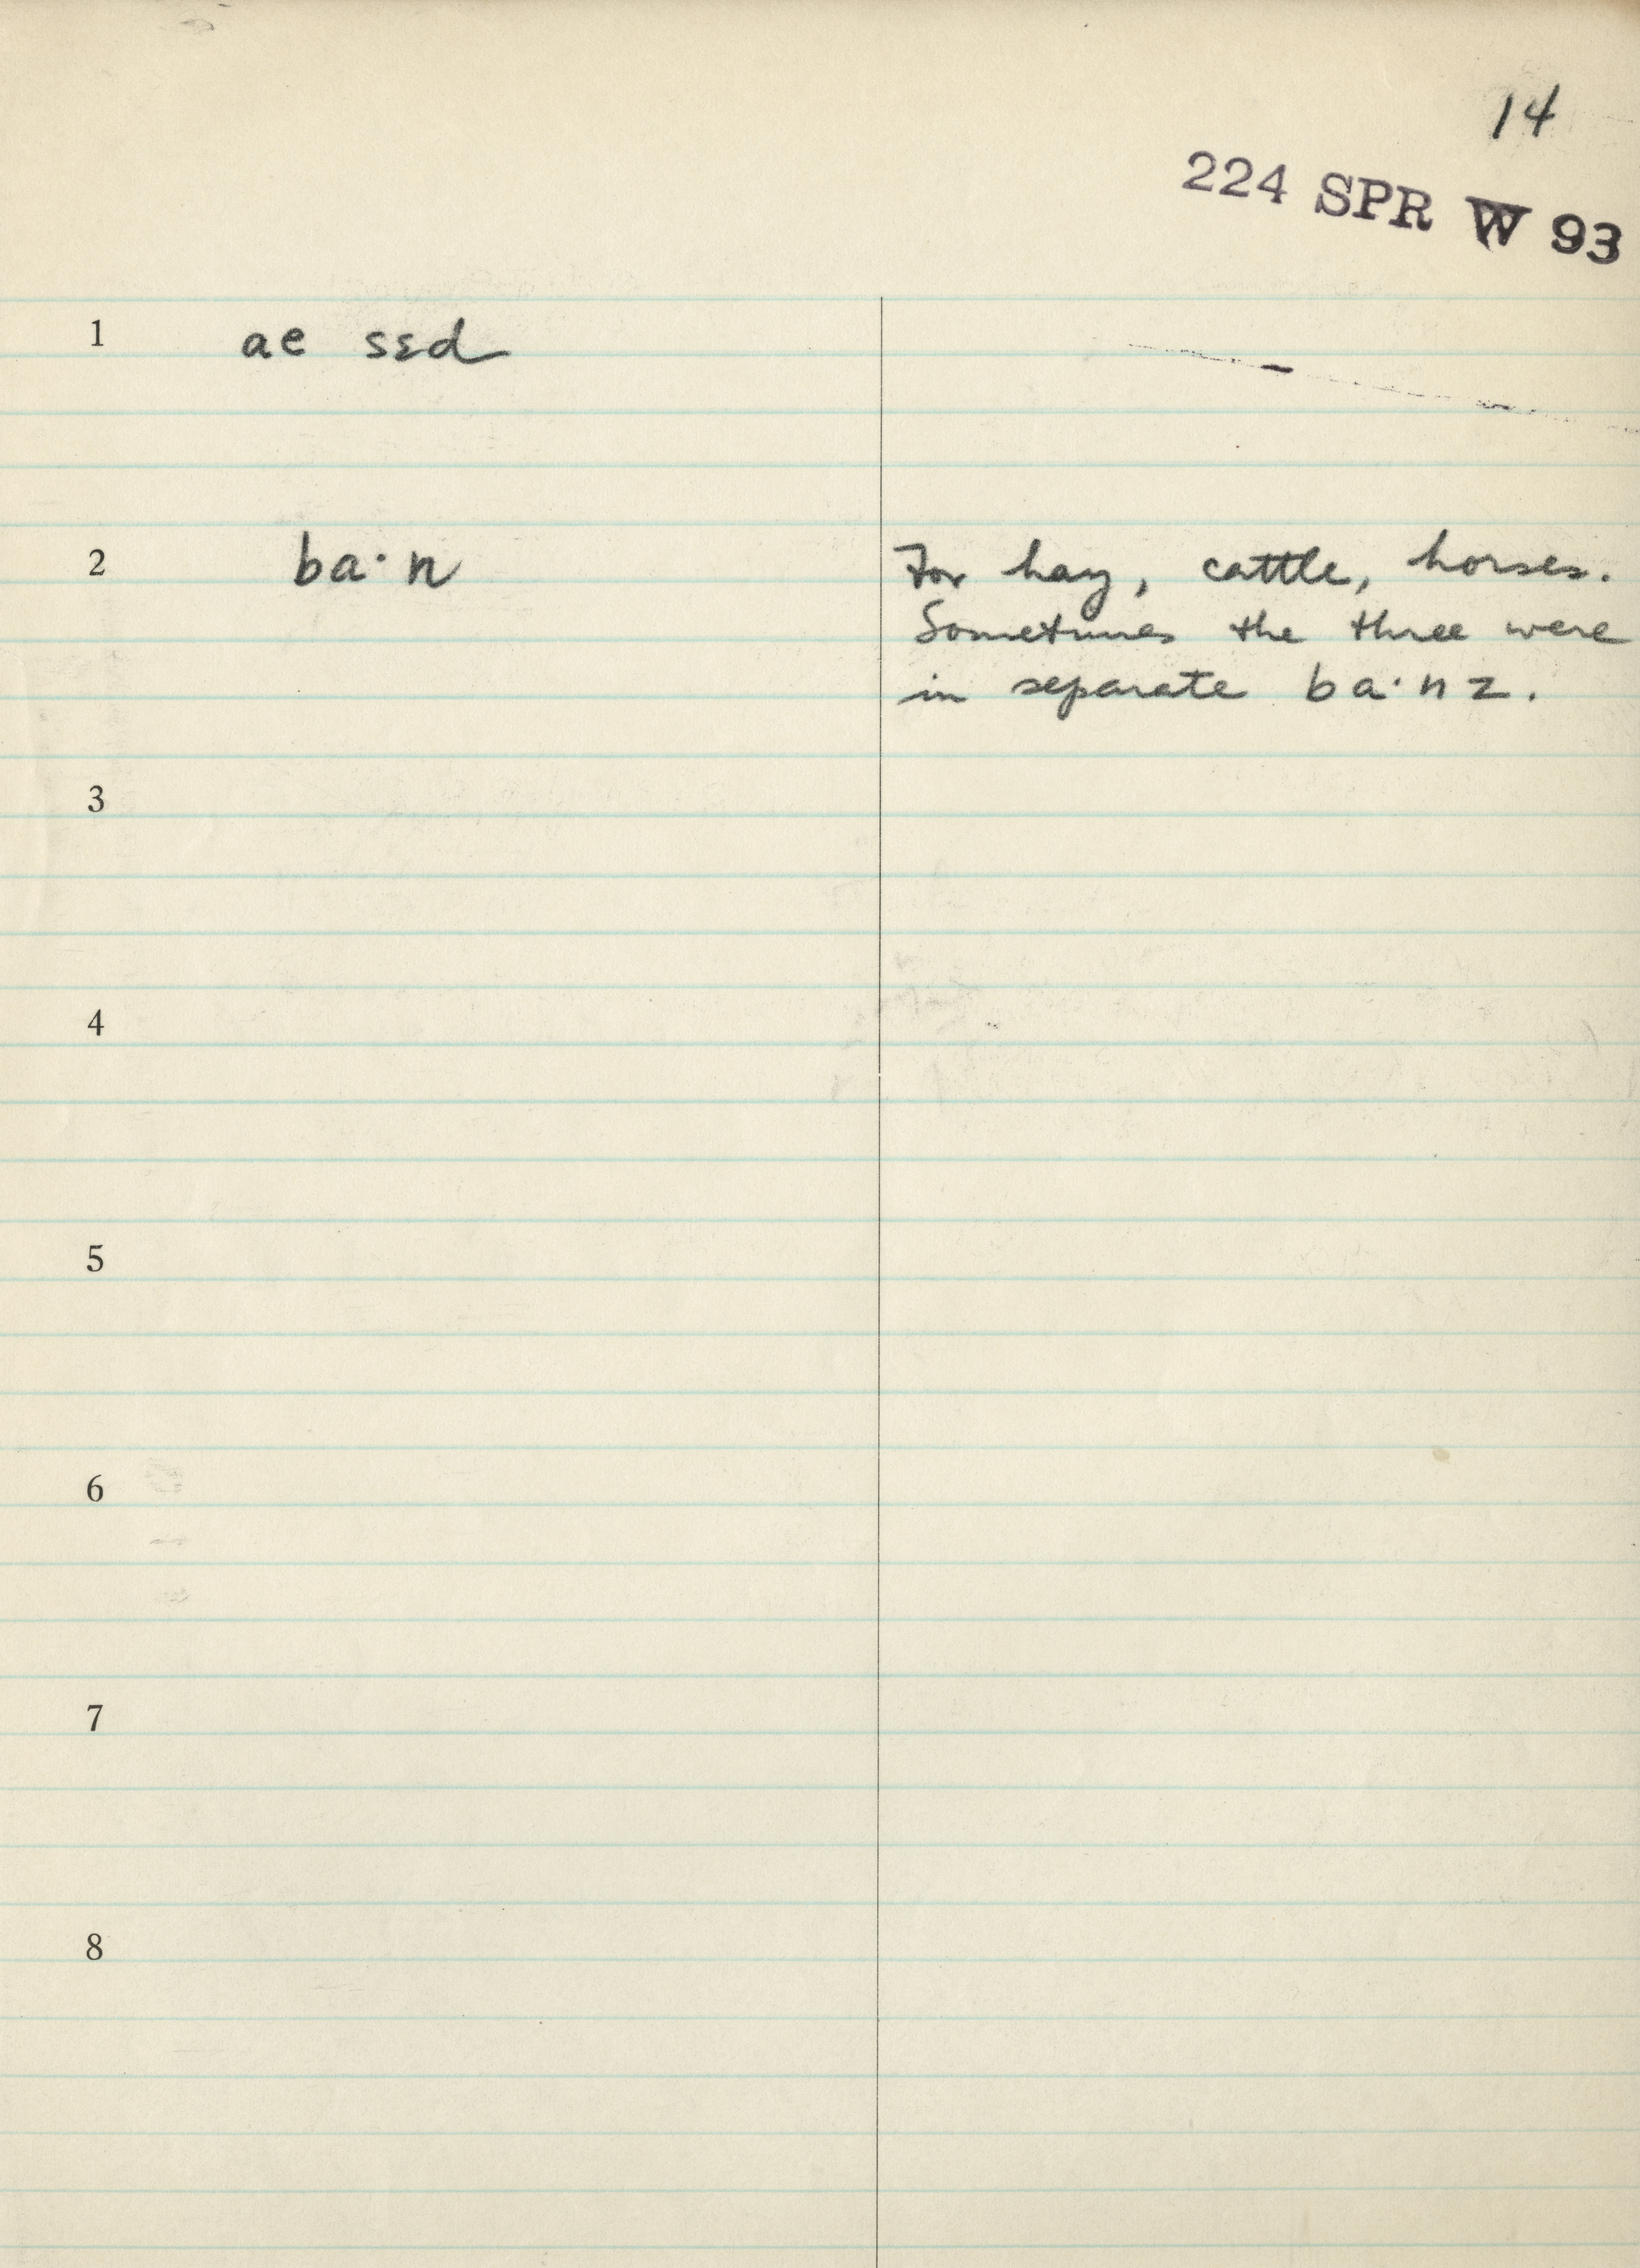 14
224 SPR W 93
1 ae sɛd
2 ba·n For hay, cattle, horses.
Sometimes the three were
in separate ba·nz.
3
4
5
6
7
8